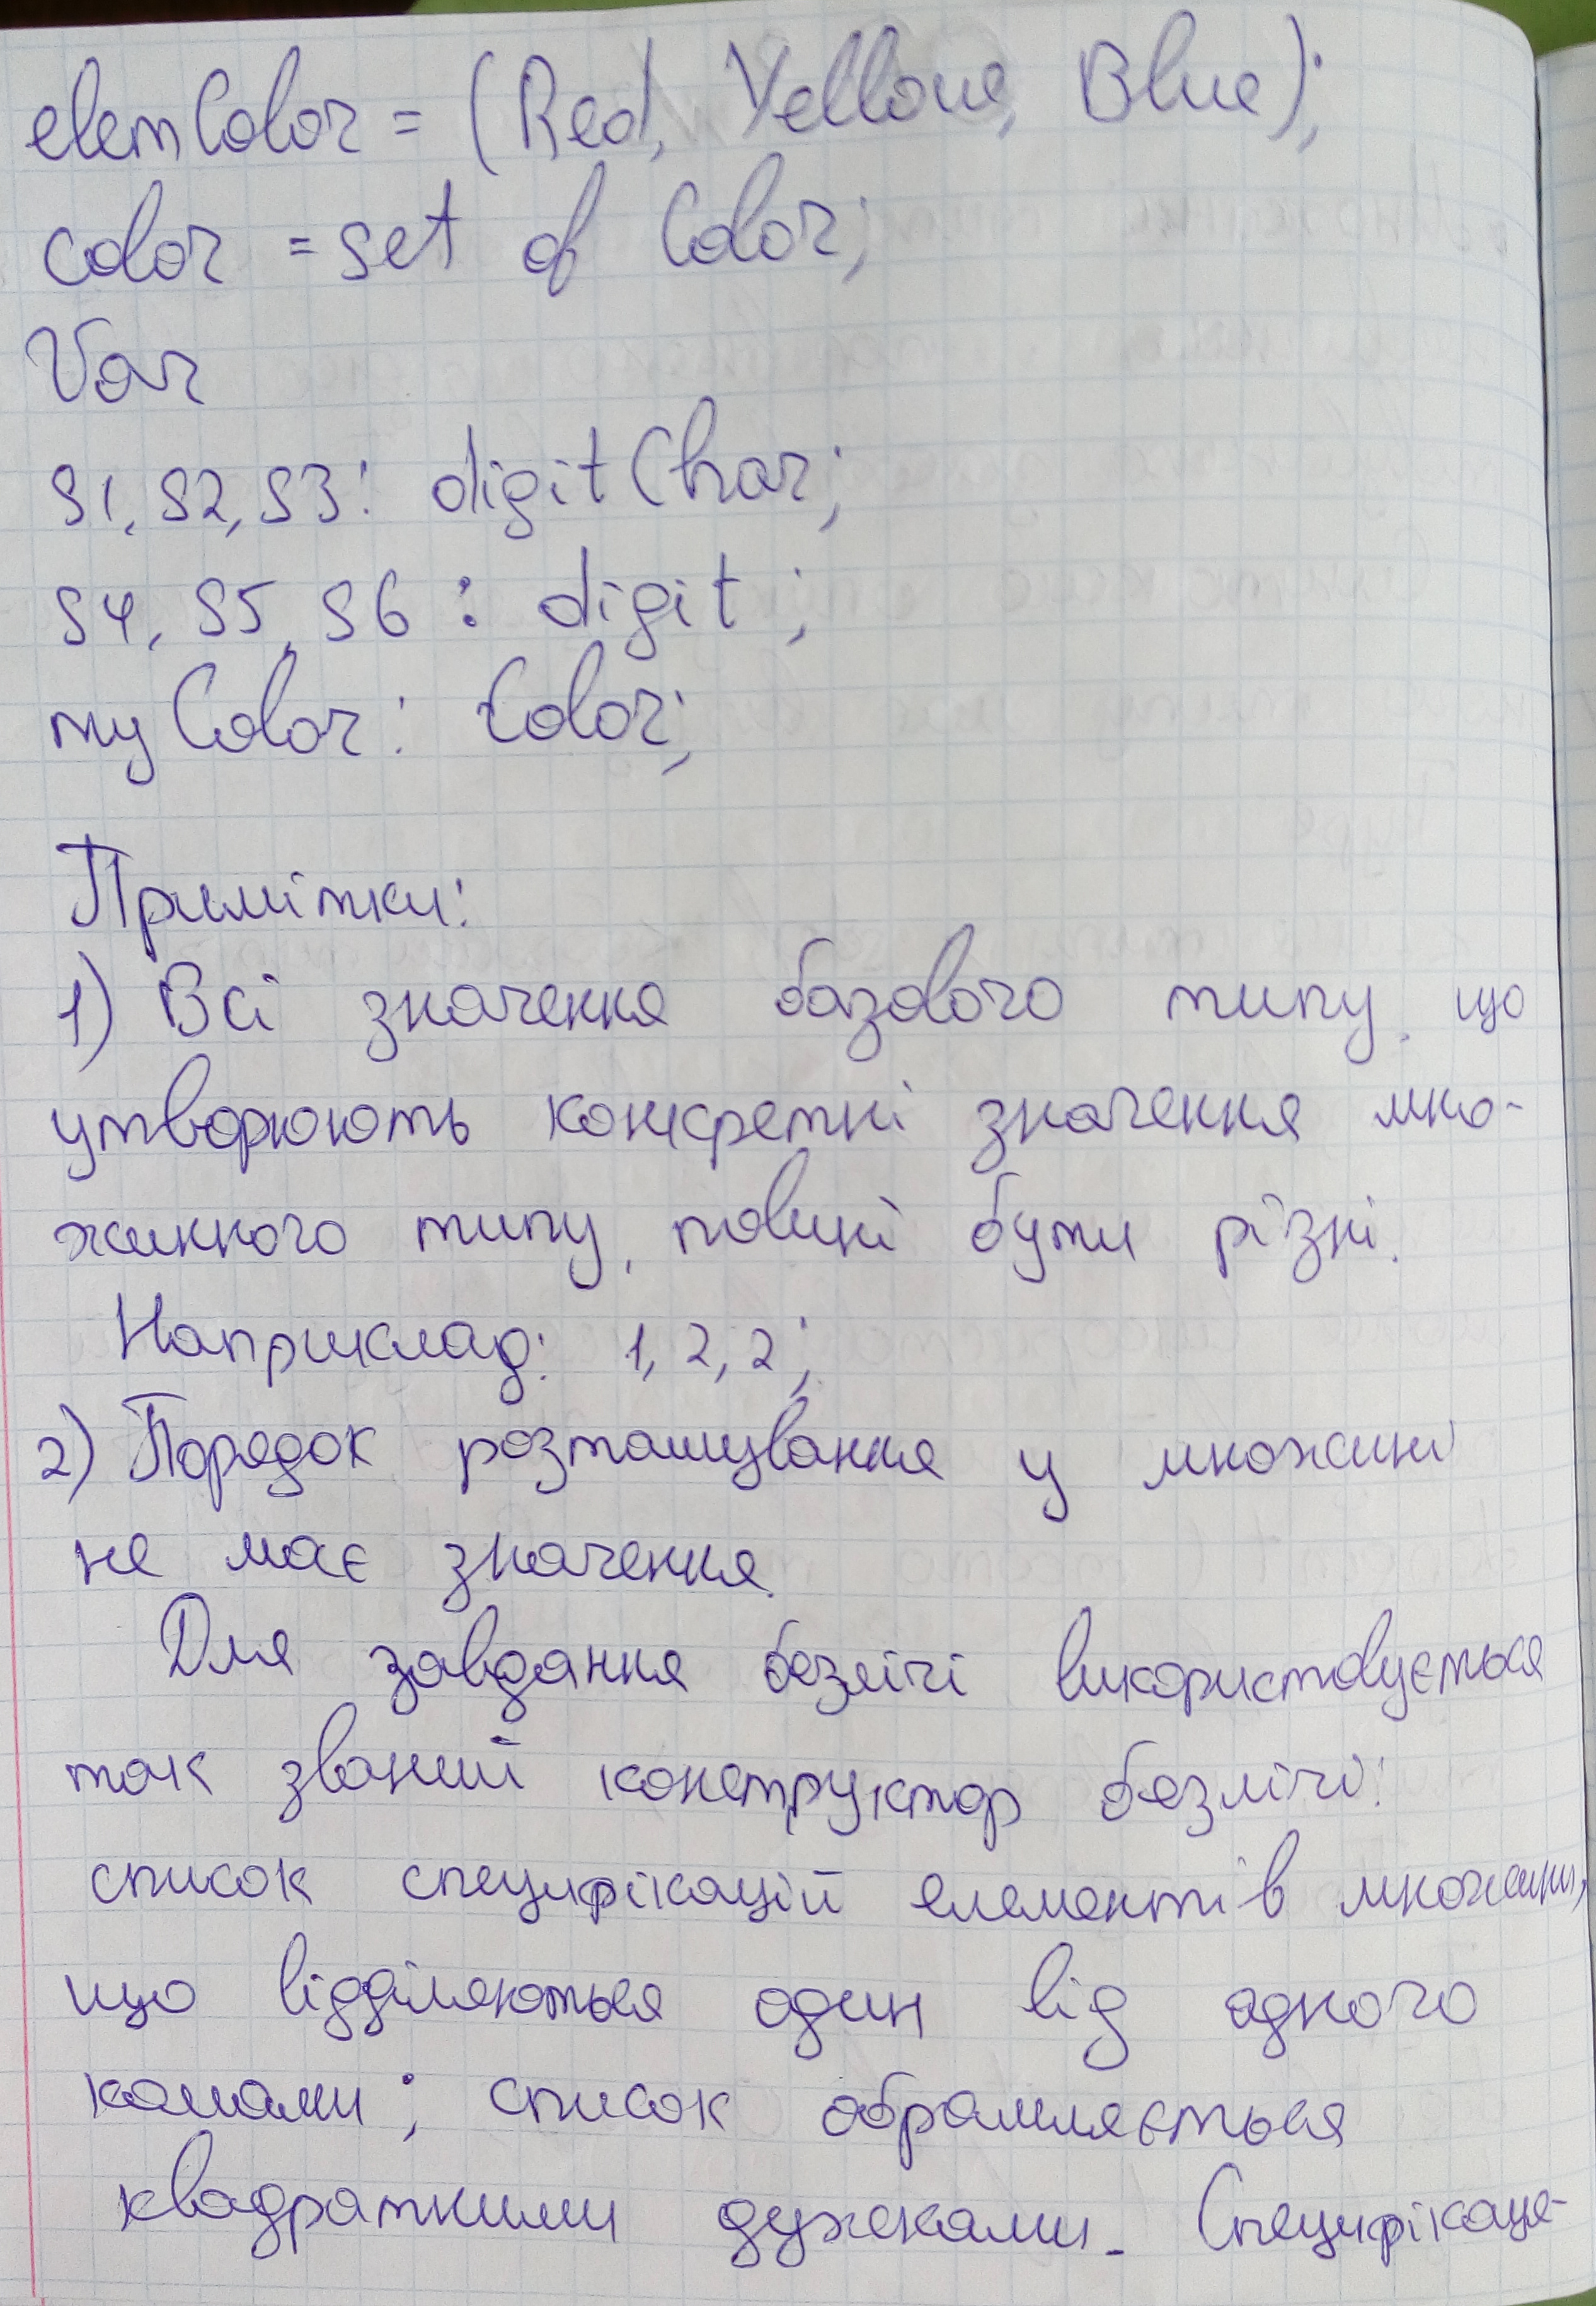 elemColor = (Red, Yellow, Blue);
color = set of Color;
Var
S1, S2, S3: digitChar;
S4, S5, S6 : digit ;
myColor: Color;
Примітки:
1) Всі значення базового типу, що
утворюють конкретні значення мно-
жинного типу, повині бути різні.
Наприклад: 1, 2, 2 ;
2) Порядок розташування у множині
не має значення.
Для завдання безлічі використовується
так званий конструктор безлічі:
список специфікацій елементів множини,
що відділяються один від одного
комами; список обрамляється
квадратними дужками. Специфікаце-